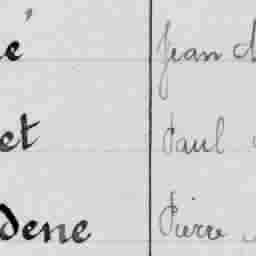 é Jean
et Paul
dene Pierre